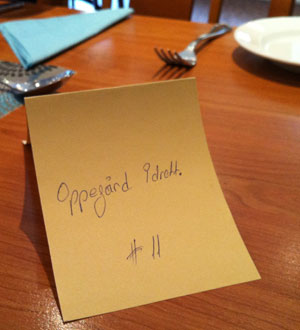 Oppegård Idrott.
# 11